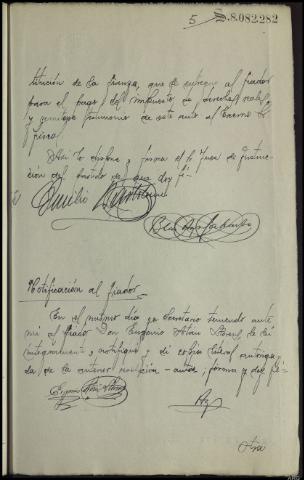 5 S.8.082.282
titución de la fianza, que se entregue al fiador
para el pago del impuesto de derechos reales
y testimonio de este auto al Excmo Sr
fiscal.
Así lo y firma el Sr Juez de Instruc-
ción del partido de que doy fé-
Emilio
Notificación al fiador-
En el mismo día yo Secretario teniendo ante
mi al fiador Don Eugenio le leí
integramente, notifiqué y di copia literal autoriza-
da de la anterior resolución - auto; firma y doy fé-
Eugenio
Otra